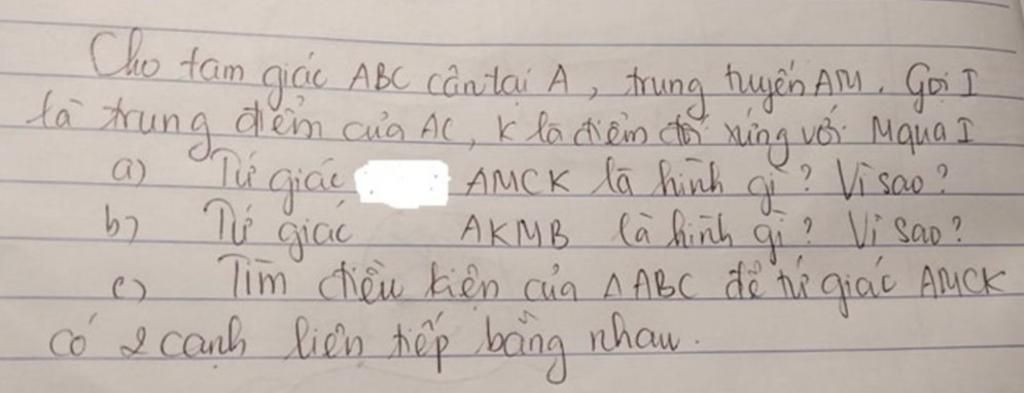 Cho tam giác ABC cân tại A, trung tuyến AM. Gọi I
là trung điểm của AC, K là điểm đối xứng với M qua I
a) Tứ giác AMCK là hình gì? Vì sao?
b) Tứ giác AKMB là hình gì? Vì sao?
c) Tìm điều kiện của △ABC để tứ giác AMCK
có 2 cạnh liên tiếp bằng nhau.